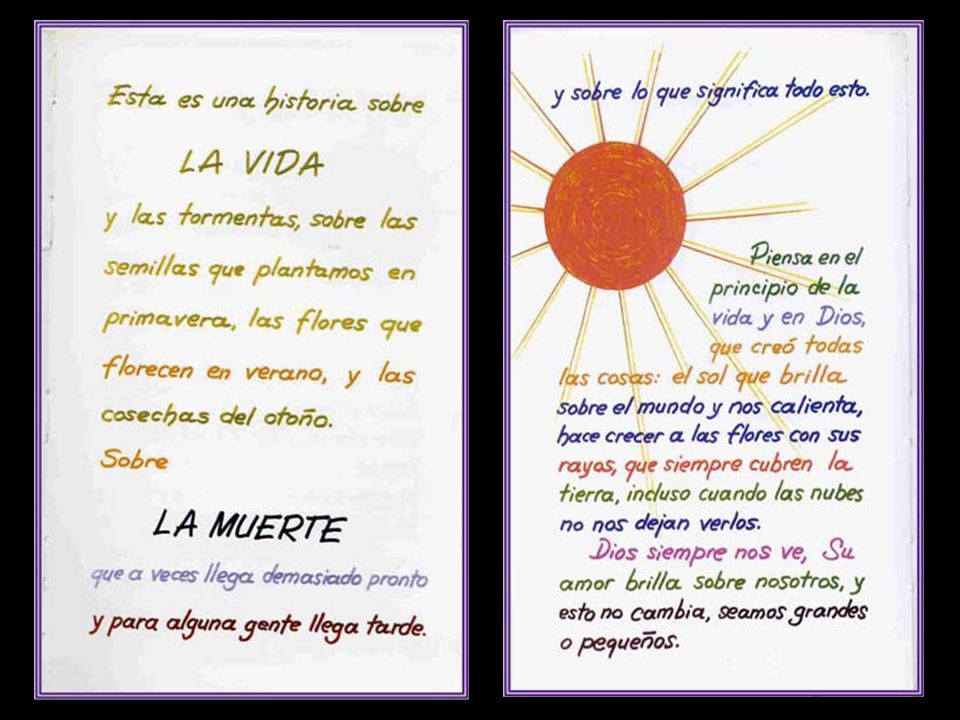 Esta es una historia sobre
LA VIDA
y las tormentas, sobre las
semillas que plantamos en
primavera, las flores que
florecen en verano, y las
cosechas del otoño.
Sobre
LA MUERTE
que a veces llega demasiado pronto
y para alguna gente llega tarde.
y sobre lo que significa todo esto.
Piensa en el
principio de la
vida y en Dios,
que creó todas
las cosas: el sol que brilla
sobre el mundo y nos calienta,
hace crecer a las flores con sus
rayos, que siempre cubren la
tierra, incluso cuando las nubes
no nos dejan verlos.
Dios siempre nos ve, Su
amor brilla sobre nosotros, y
esto no cambia, seamos grandes
o pequeños.